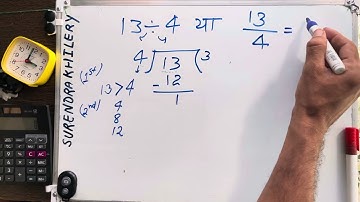 13 ÷ 4 या 13/4 =
4)13(3
(1st) 13 > 4 - 12
1
(2nd) 4
8
12
SURENDRA KHILERY